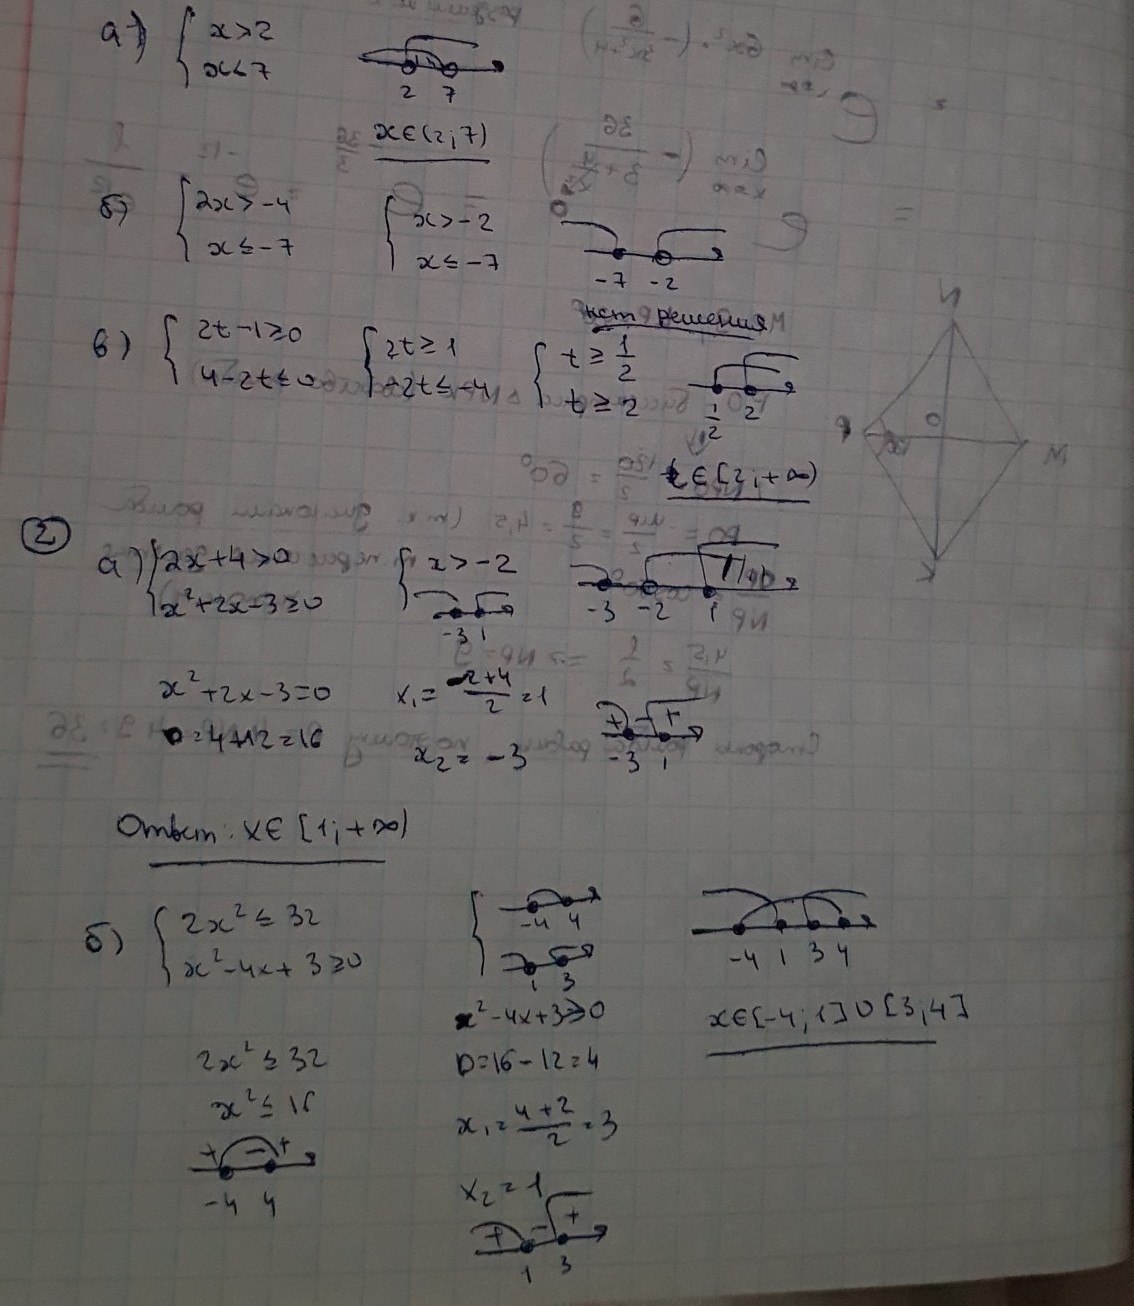 а) { x > 2
x < 7
2 7
x ∈ (2; 7)
б) { 2x > -4
x ≤ -7
{ x > -2
x ≤ -7
-7 -2
нет решения
в) { 2t - 1 ≥ 0
4 - 2t ≤ 0
{ 2t ≥ 1
-2t ≤ -4
{ t ≥ 1/2
t ≥ 2
1/2 2
t ∈ [2; +∞)
2
а) { 2x + 4 > 0
x² + 2x - 3 ≥ 0
{ x > -2
-3 1
-3 -2 1
x² + 2x - 3 = 0
D = 4 + 12 = 16
x₁ = (-2+4)/2 = 1
x₂ = -3
+ - +
-3 1
Ответ: x ∈ [1; +∞)
б) { 2x² ≤ 32
x² - 4x + 3 ≥ 0
{ -4 4
1 3
-4 1 3 4
x ∈ [-4; 1] ∪ [3; 4]
2x² ≤ 32
x² ≤ 16
+ - +
-4 4
x² - 4x + 3 ≥ 0
D = 16 - 12 = 4
x₁ = (4+2)/2 = 3
x₂ = 1
+ - +
1 3